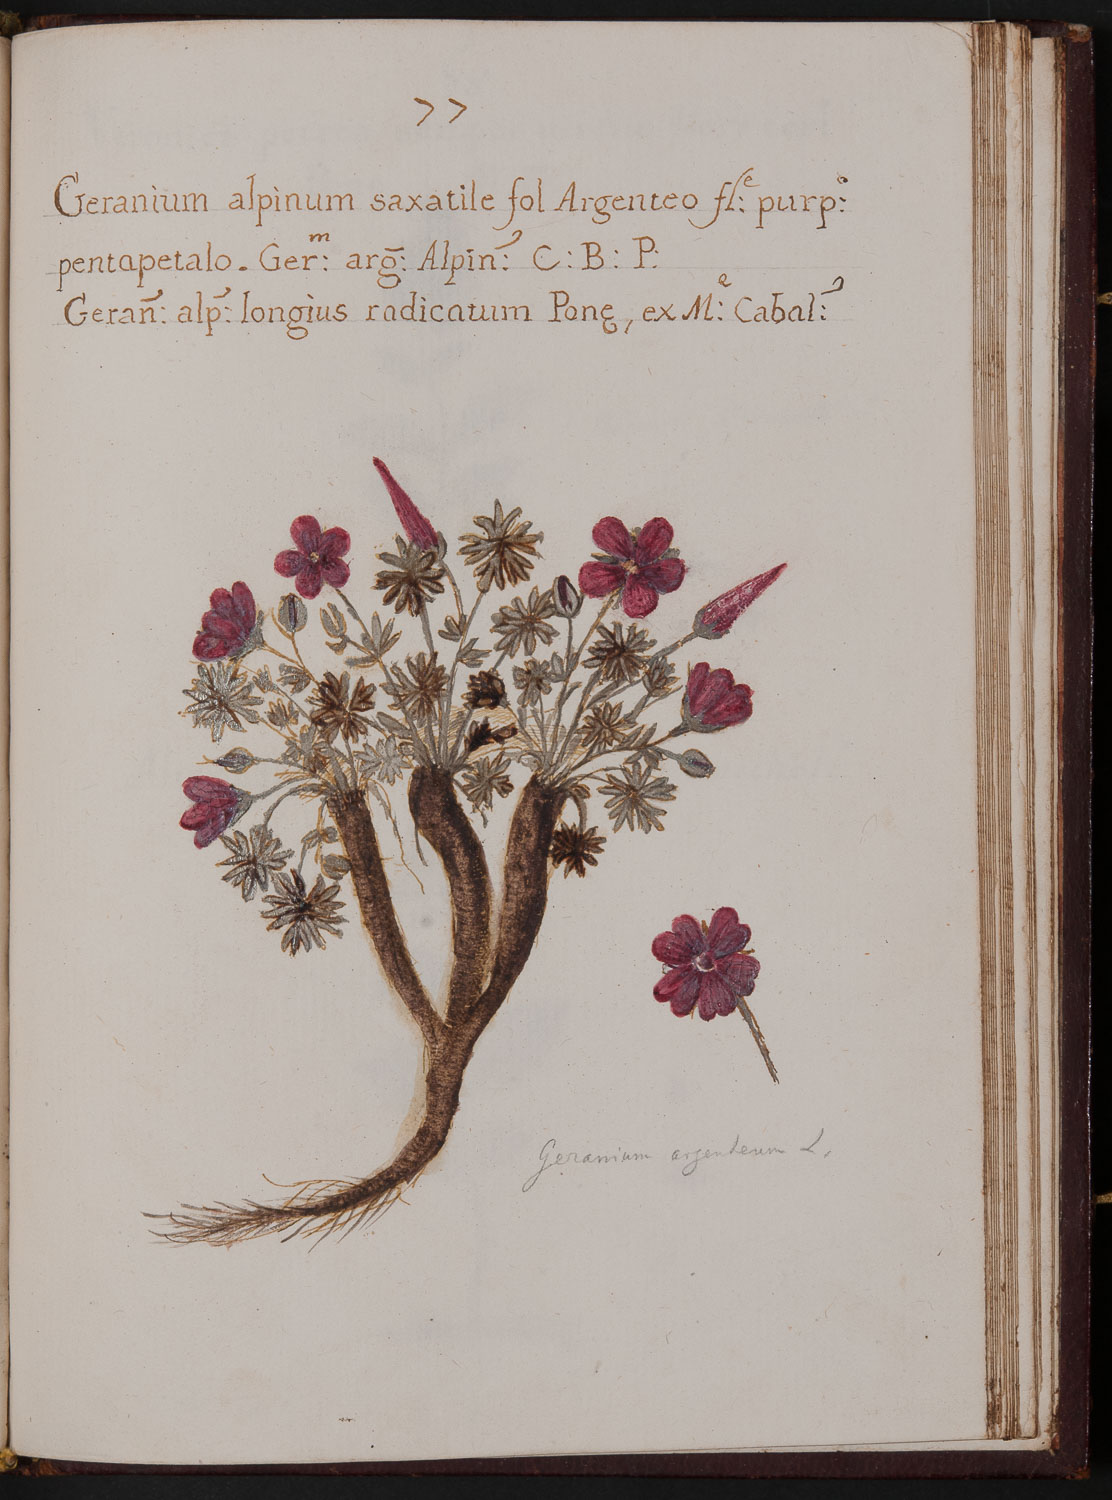 77
Geranium alpinum saxatile fol Argenteo fl:ᵉ purp:º
pentapetalo. Ger:ᵐ arg̃: Alpin̄:ˀ C: B: P:
Gerañ: alp̃: longius radicatum Ponę, ex M:ᵉ Cabal:ˀ
Geranium argenteum L.